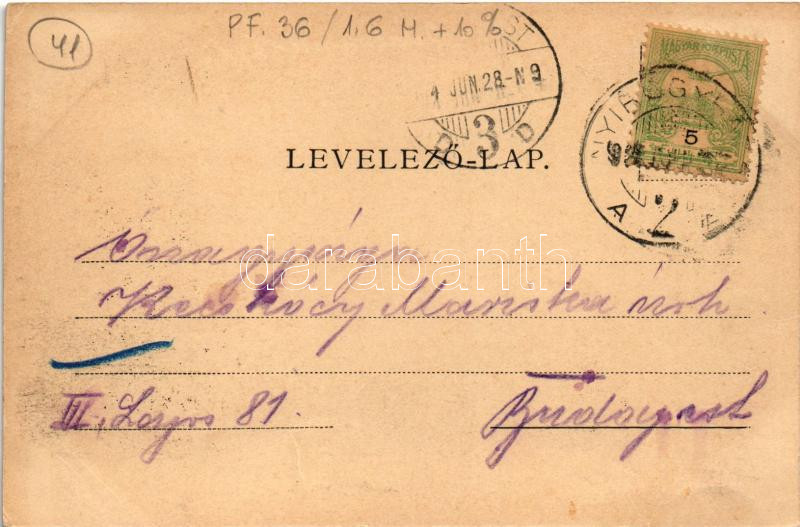 41
PF. 36 / 1,6 M. + 10 %
ST
1 JUN. 28-N 9
D 3 D
MAGYAR KIR. POSTA
5
NYIREGYH
A 2 A
LEVELEZŐ-LAP.
darabanth
Mariska úrh.
III, Lajos 81.
Budapest